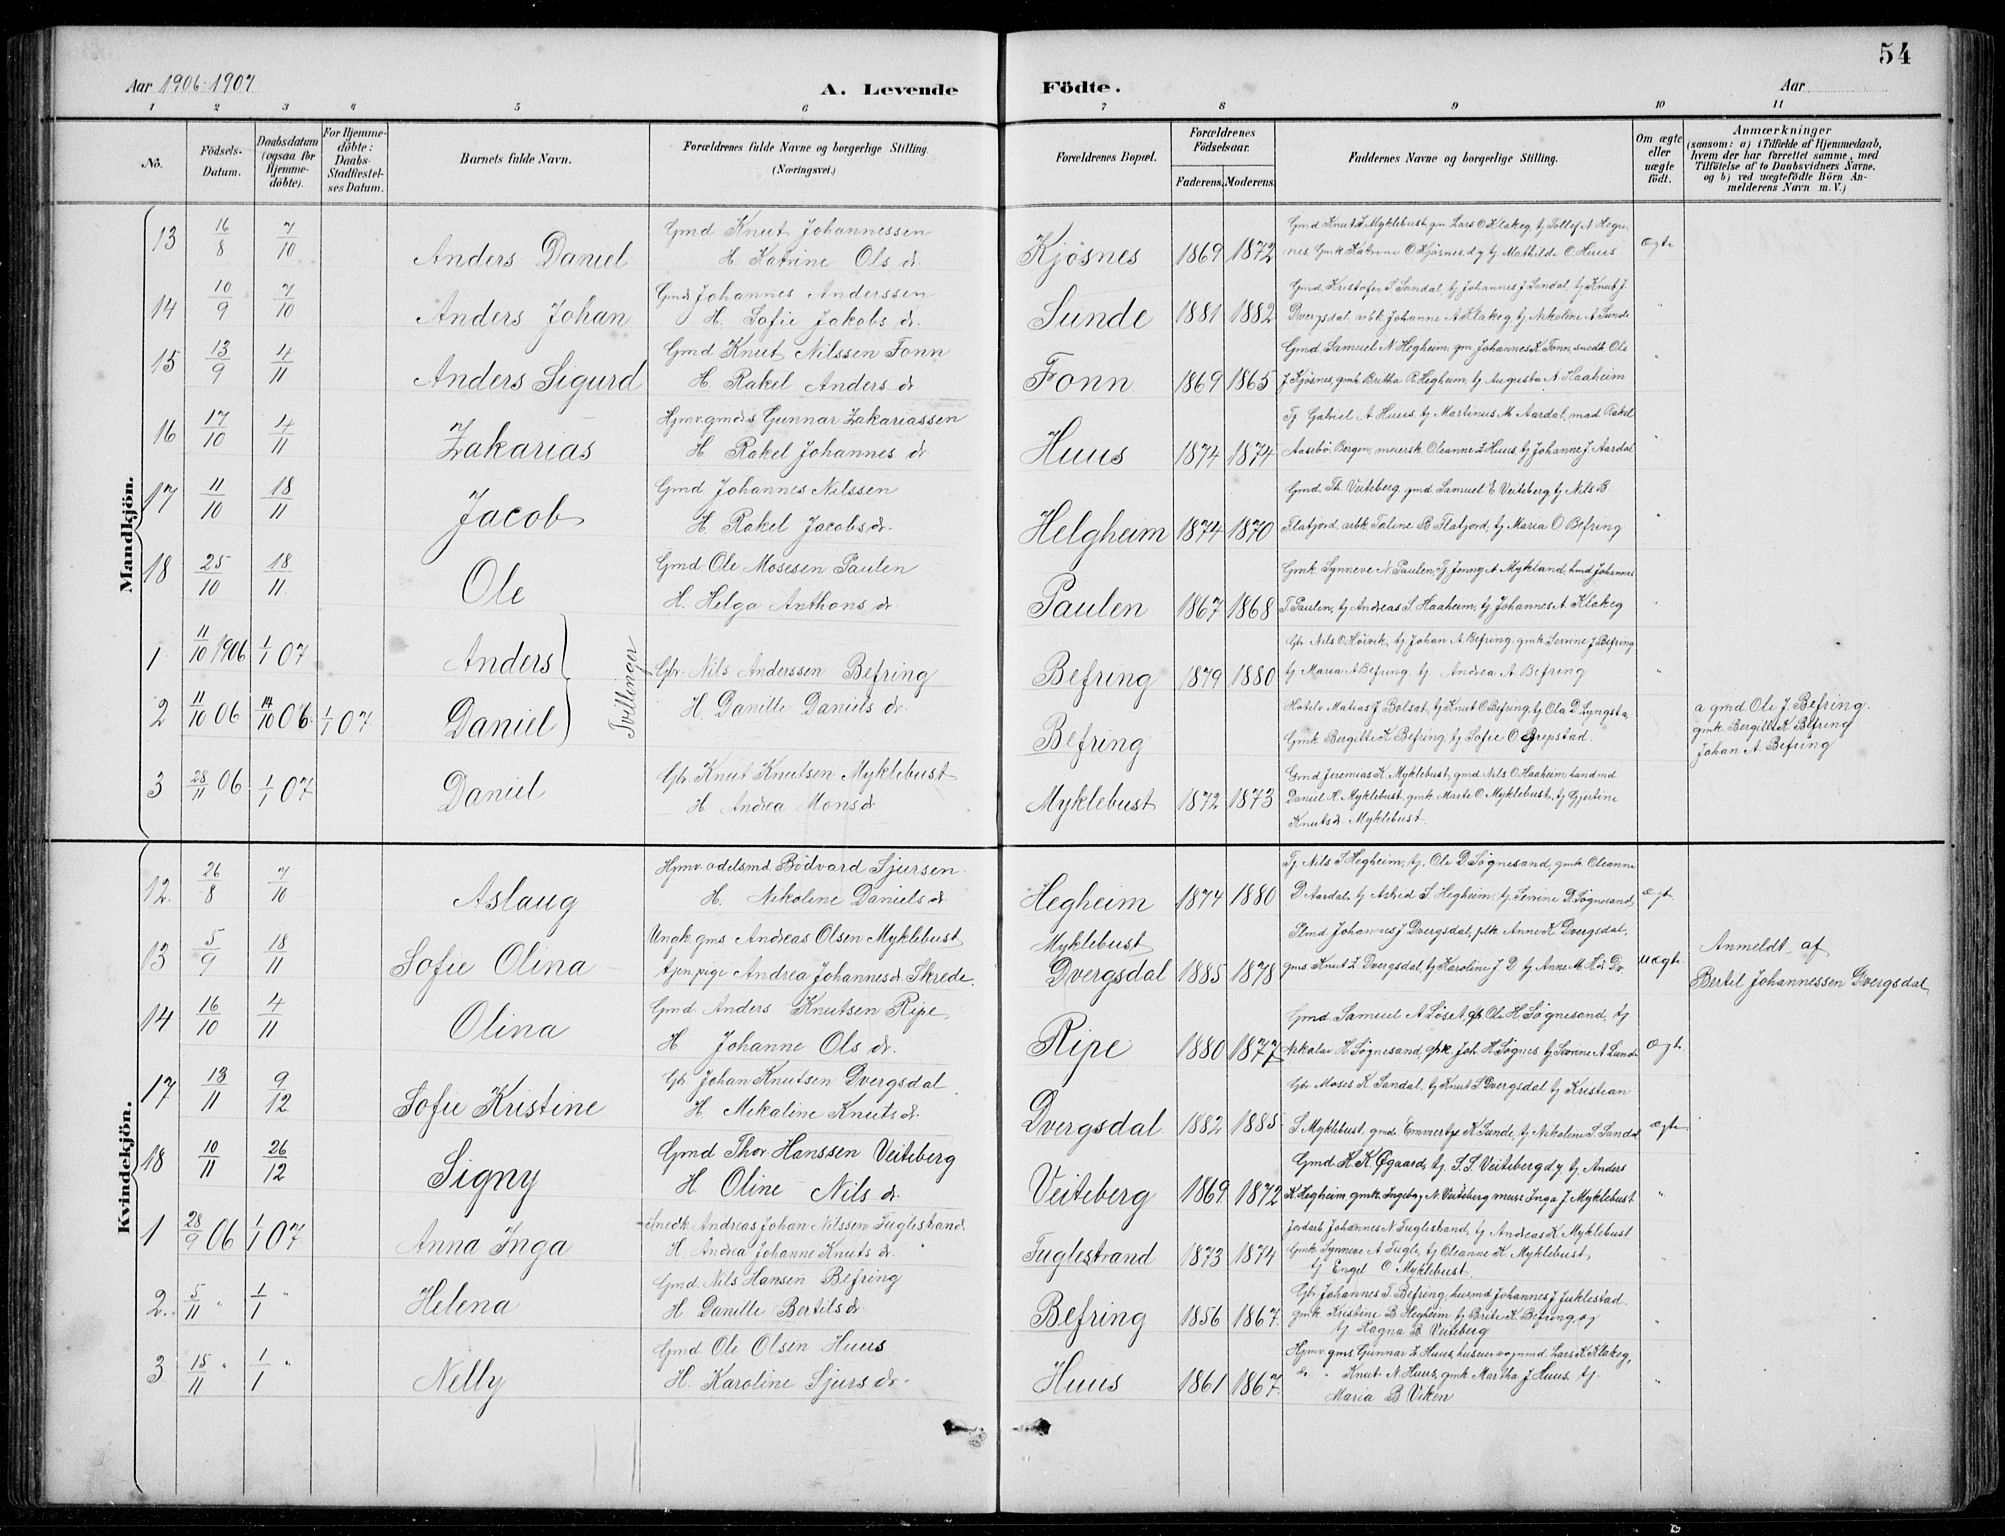 54
Aar 1906-1907 A. Levende Födte. Aar
1 2 3 4 5 6 7 8 9 10 11
No. Födsels-Datum. Daabsdatum (ogsaa for Hjemme-döbte). For Hjemme-döbte: Daabs-Stadfæstel-ses Datum. Barnets fulde Navn. Forældrenes fulde Navne og borgerlige Stilling. (Næringsvei.) Forældrenes Bopæl. Forældrenes Födselsaar. Faderens. Moderens. Faddernes Navne og borgerlige Stilling. Om ægte eller uægte födt. Anmærkninger (saasom: a) i Tilfælde af Hjemmedaab, hvem der har forrettet samme, med Tilföielse af to Daabsvidners Navne. og b) ved uægtefödte Börn An-melderens Navn m. V.)
Mandkjön.
13 16/8 7/10 Anders Daniel Gmd Knut Johannessen
H. Katrine Ols dr. Kjösnes 1869 1872 Gmd Knut L Myklebust gm Lars O Klakeg tj Tollef N Hegre-
nes, Gmk Katrine O Kjösnes, d y tj Mathilde O. Huus ægte
14 10/9 7/10 Anders Johan Gmd Johannes Anderssen
H. Sofie Jakobs dr. Sunde 1881 1882 Gmd Kristofer S Sandal, tj Johannes J Sandal, tj Knut J.
Dvergsdal, arbk Johanne A Klakeg tj Nikoline A Sunde "
15 13/9 4/11 Anders Sigurd Gmd Knut Nilssen Fonn
H. Rakel Anders dr Fonn 1869 1865 Gmd Samuel N Hegheim, gm Johannes K Fonn, snedk Ole
J Kjösnes, gmk Britha R Hegheim, tj Augusta A Haaheim "
16 17/10 4/11 Zakarias Hjmv. gmds Gunnar Zakariassen
H Rakel Johannes dr Huus 1874 1874 Tj Gabriel A Huus, tj Martinus M Aardal, mad Rakel
Aasebö Bergen, meiersk Oleanne Z Huus, tj Johanne J Aardal "
17 11/10 18/11 Jacob Gmd Johannes Nilssen
H. Rakel Jacobs dr. Helgheim 1874 1870 Gmd. Th. Veiteberg, gmd Samuel E Veiteberg tj Nils B
Flatjord, arbk Taline B Flatjord, tj Maria O Befring "
18 25/10 18/11 Ole Gmd Ole Mosesen Paulen
H. Helga Anthons dr. Paulen 1867 1868 Gmk Synneve N Paulen, tj Jenny A Mykland, hmd Johannes
T Paulen, tj Andreas S Haaheim, tj Johannes A Klakeg "
1 11/10 1906 1/1 07 Anders Tvillinger Gbr. Nils Anderssen Befring Befring 1879 1880 Gbr Nils O Höivik, tj Johan A Befring, gmk Serine J Befring
tj Maria A Befring, tj Andrea A Befring "
2 11/10 06 14/10 06. 1/1 07 Daniel H. Danille Daniels dr. Befring Hotels Matias J Bolsat, tj Knut O Befring, tj Ola D Lyngsta,
Gmk Bergitte K Befring tj Sofie O Grepstad. a gmd Ole J Befring.
gmk Bergitte K Befring
Johan A. Befring
3 28/11 06 1/1 07 Daniel Gbr. Knut Knutsen Myklebust
H Andrea Mons dr Myklebust 1872 1873 Gmd Jeremias K. Myklebust, gmd Nils O Haaheim, handmd
Daniel H. Myklebust, gmk Marte O Myklebust, tj Gjertine
Knuts dr Myklebust.
Kvindekjön.
12. 26/8 7/10 Aslaug Hjmv. odelsmd Bödvard Sjursen.
H. Nikoline Daniels dr Hegheim 1874 1880 Tj. Nils S Hegheim, tj. Ole D Sögnesand, gmk Oleanne
D Aardal, tj Astrid S. Hegheim, tj Serine D Sögnesand, ægte.
13 5/9 18/11 Sofie Olina Ungk. gms Andreas Olsen Myklebust
tjen.pige Andrea Johannes dr Skrede. Myklebust
Dvergsdal 1885 1878 Plmd Johannes J Dvergsdal, plk Anne K Dvergsdal,
gms Knut L Dvergsdal, tj Karoline J. D tj Anne M. H dr Dv. uægte Anmeldt af
Bertil Johannessen Dvergsdal
14 16/10 4/11 Olina Gmd Anders Knutsen Ripe
H Johanne Ols dr. Ripe 1880 1877 Gmd Samuel A Löset, gbr Ole H Sögnesand, tj
Nikolai H Sögnesand, gbk. Joh. H Sögnes. tj Serine A Sunde Ægte.
17 13/11 9/12 Sofie Kristine Gbr Johan Knutsen Dvergsdal
H Mikaline Knuts dr. Dvergsdal 1882 1885 Gbr Moses K Sandal, tj Knut S Dvergsdal tj Kristian
S Myklebust, gmd Emmertze K Sunde, tj Nikoline S. Sandal ægte
18 10/11 26/12 Signy Gmd Thor Hanssen Veiteberg
H Oline Nils dr. Veiteberg 1869 1872 Gmd. H K. Øgaard, tj. S. S. Veiteberg d y tj. Anders
K Hegheim, gmk Ingeborg N Veiteberg, Inga J Myklebust "
1 28/9 06 1/1 07 Anna Inga Snedk Andreas Johan Nilssen Fuglestrand.
H. Andrea Johanne Knuts dr. Fuglestrand 1873 1874 Jordarb Johannes N Fuglestrand, tj Andreas K Myklebust
Gmk Synneve A Fugle, tj Oleanne K. Myklebust,
tj Engel O Myklebust. "
2. 5/11 " 1/1 " Helena Gmd Nils Hansen Befring
H Danille Bertils dr Befring 1856 1867. Gbr Johannes T. Befring, husmd Johannes J Juklestad.
gmk Kristine B Hegheim tj Brite K Befring, og
tj Ragna B Veiteberg "
3 15/11 " 1/1 " Nelly Gmd Ole Olsen Huus
H. Karoline Sjurs dr. Huus 1861 1867. Hjmv. gms Gunnar Z Huus, Lars K Klakeg,
Knut N Huus, gmk Martha J Huus. tj.
Maria B Viken "